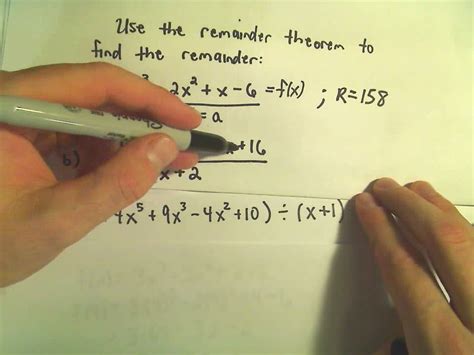 Use the remainder theorem to
find the remainder:
2x² + x - 6 = f(x) ; R=158
= a
b) +16
x+2
4x⁵ + 9x³ - 4x² + 10) ÷ (x+1)